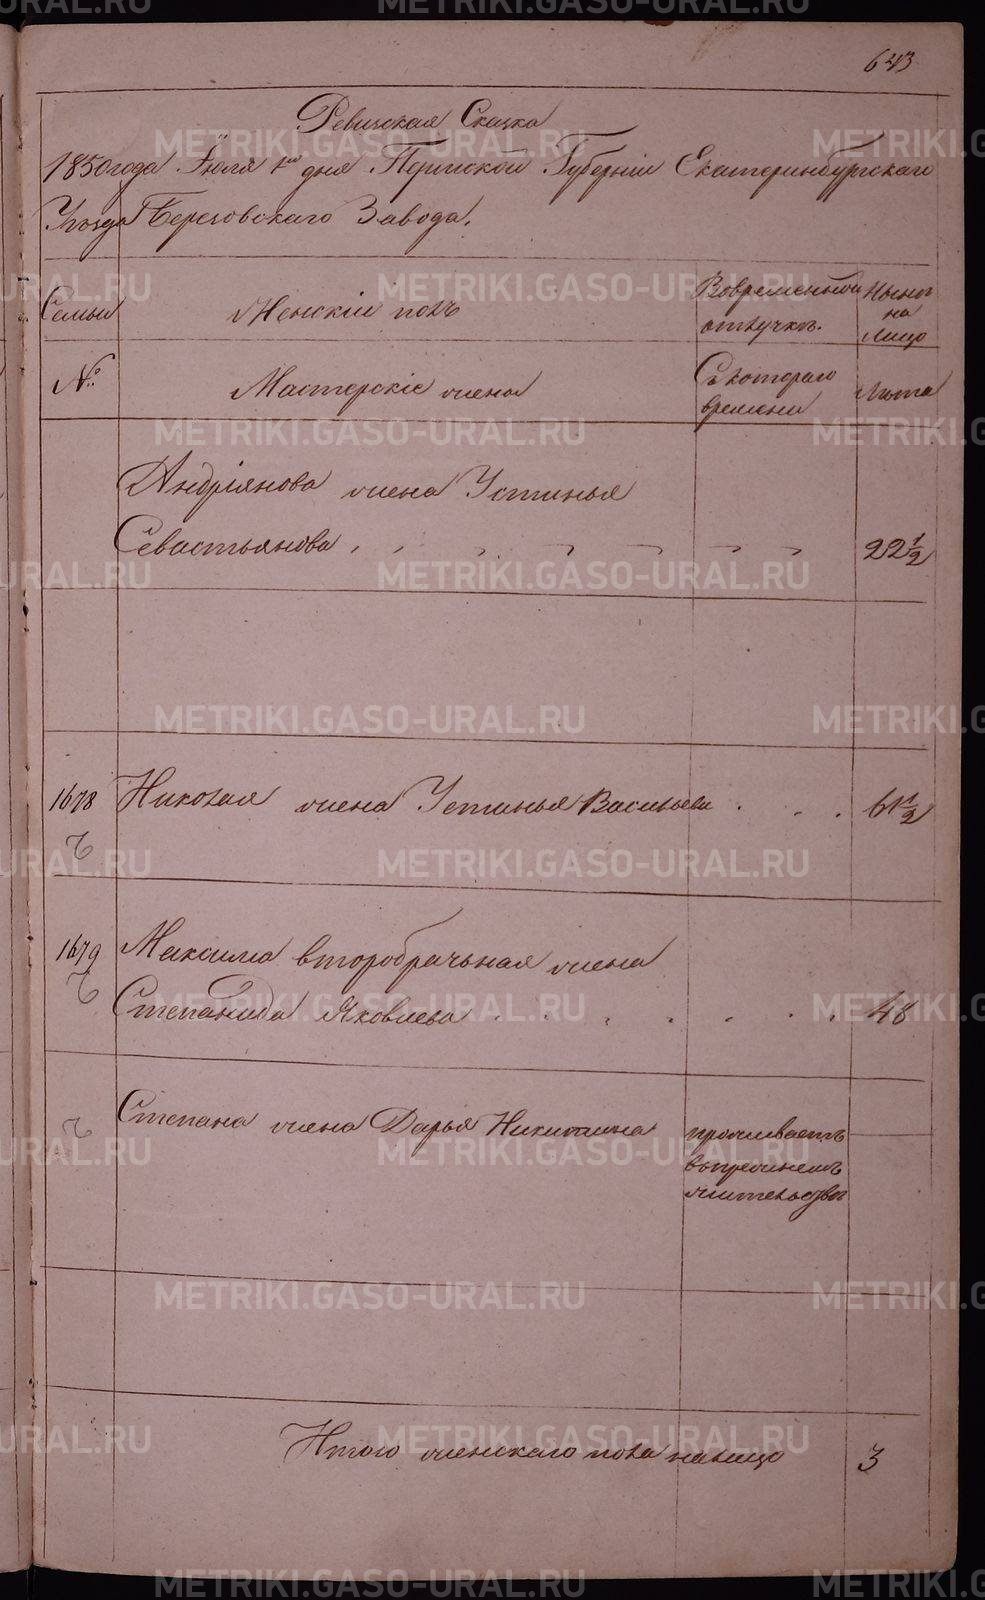 643
Ревизская Сказка
1850 года Іюля 1го дня Пермской Губерніи Екатеринбургскаго
Уѣзда Березовскаго Завода.
Семьи
Женскій полъ
Вовременной
отлучкѣ.
Нынѣ
на
лицо
№
Мастерскіе жена
Съ котораго
времени
Лѣта
Андріянова жена Устинья
Севастьянова
22 1/2
1678
Николая жена Устинья Васильева
61 1/2
1679
Максима второбрачьная жена
Степанида Яковлева
48
Степана жена Дарья Никитина
проживаетъ
въ прежнемъ
жительствѣ
Итого женскаго пола налицо
3
METRIKI.GASO-URAL.RU